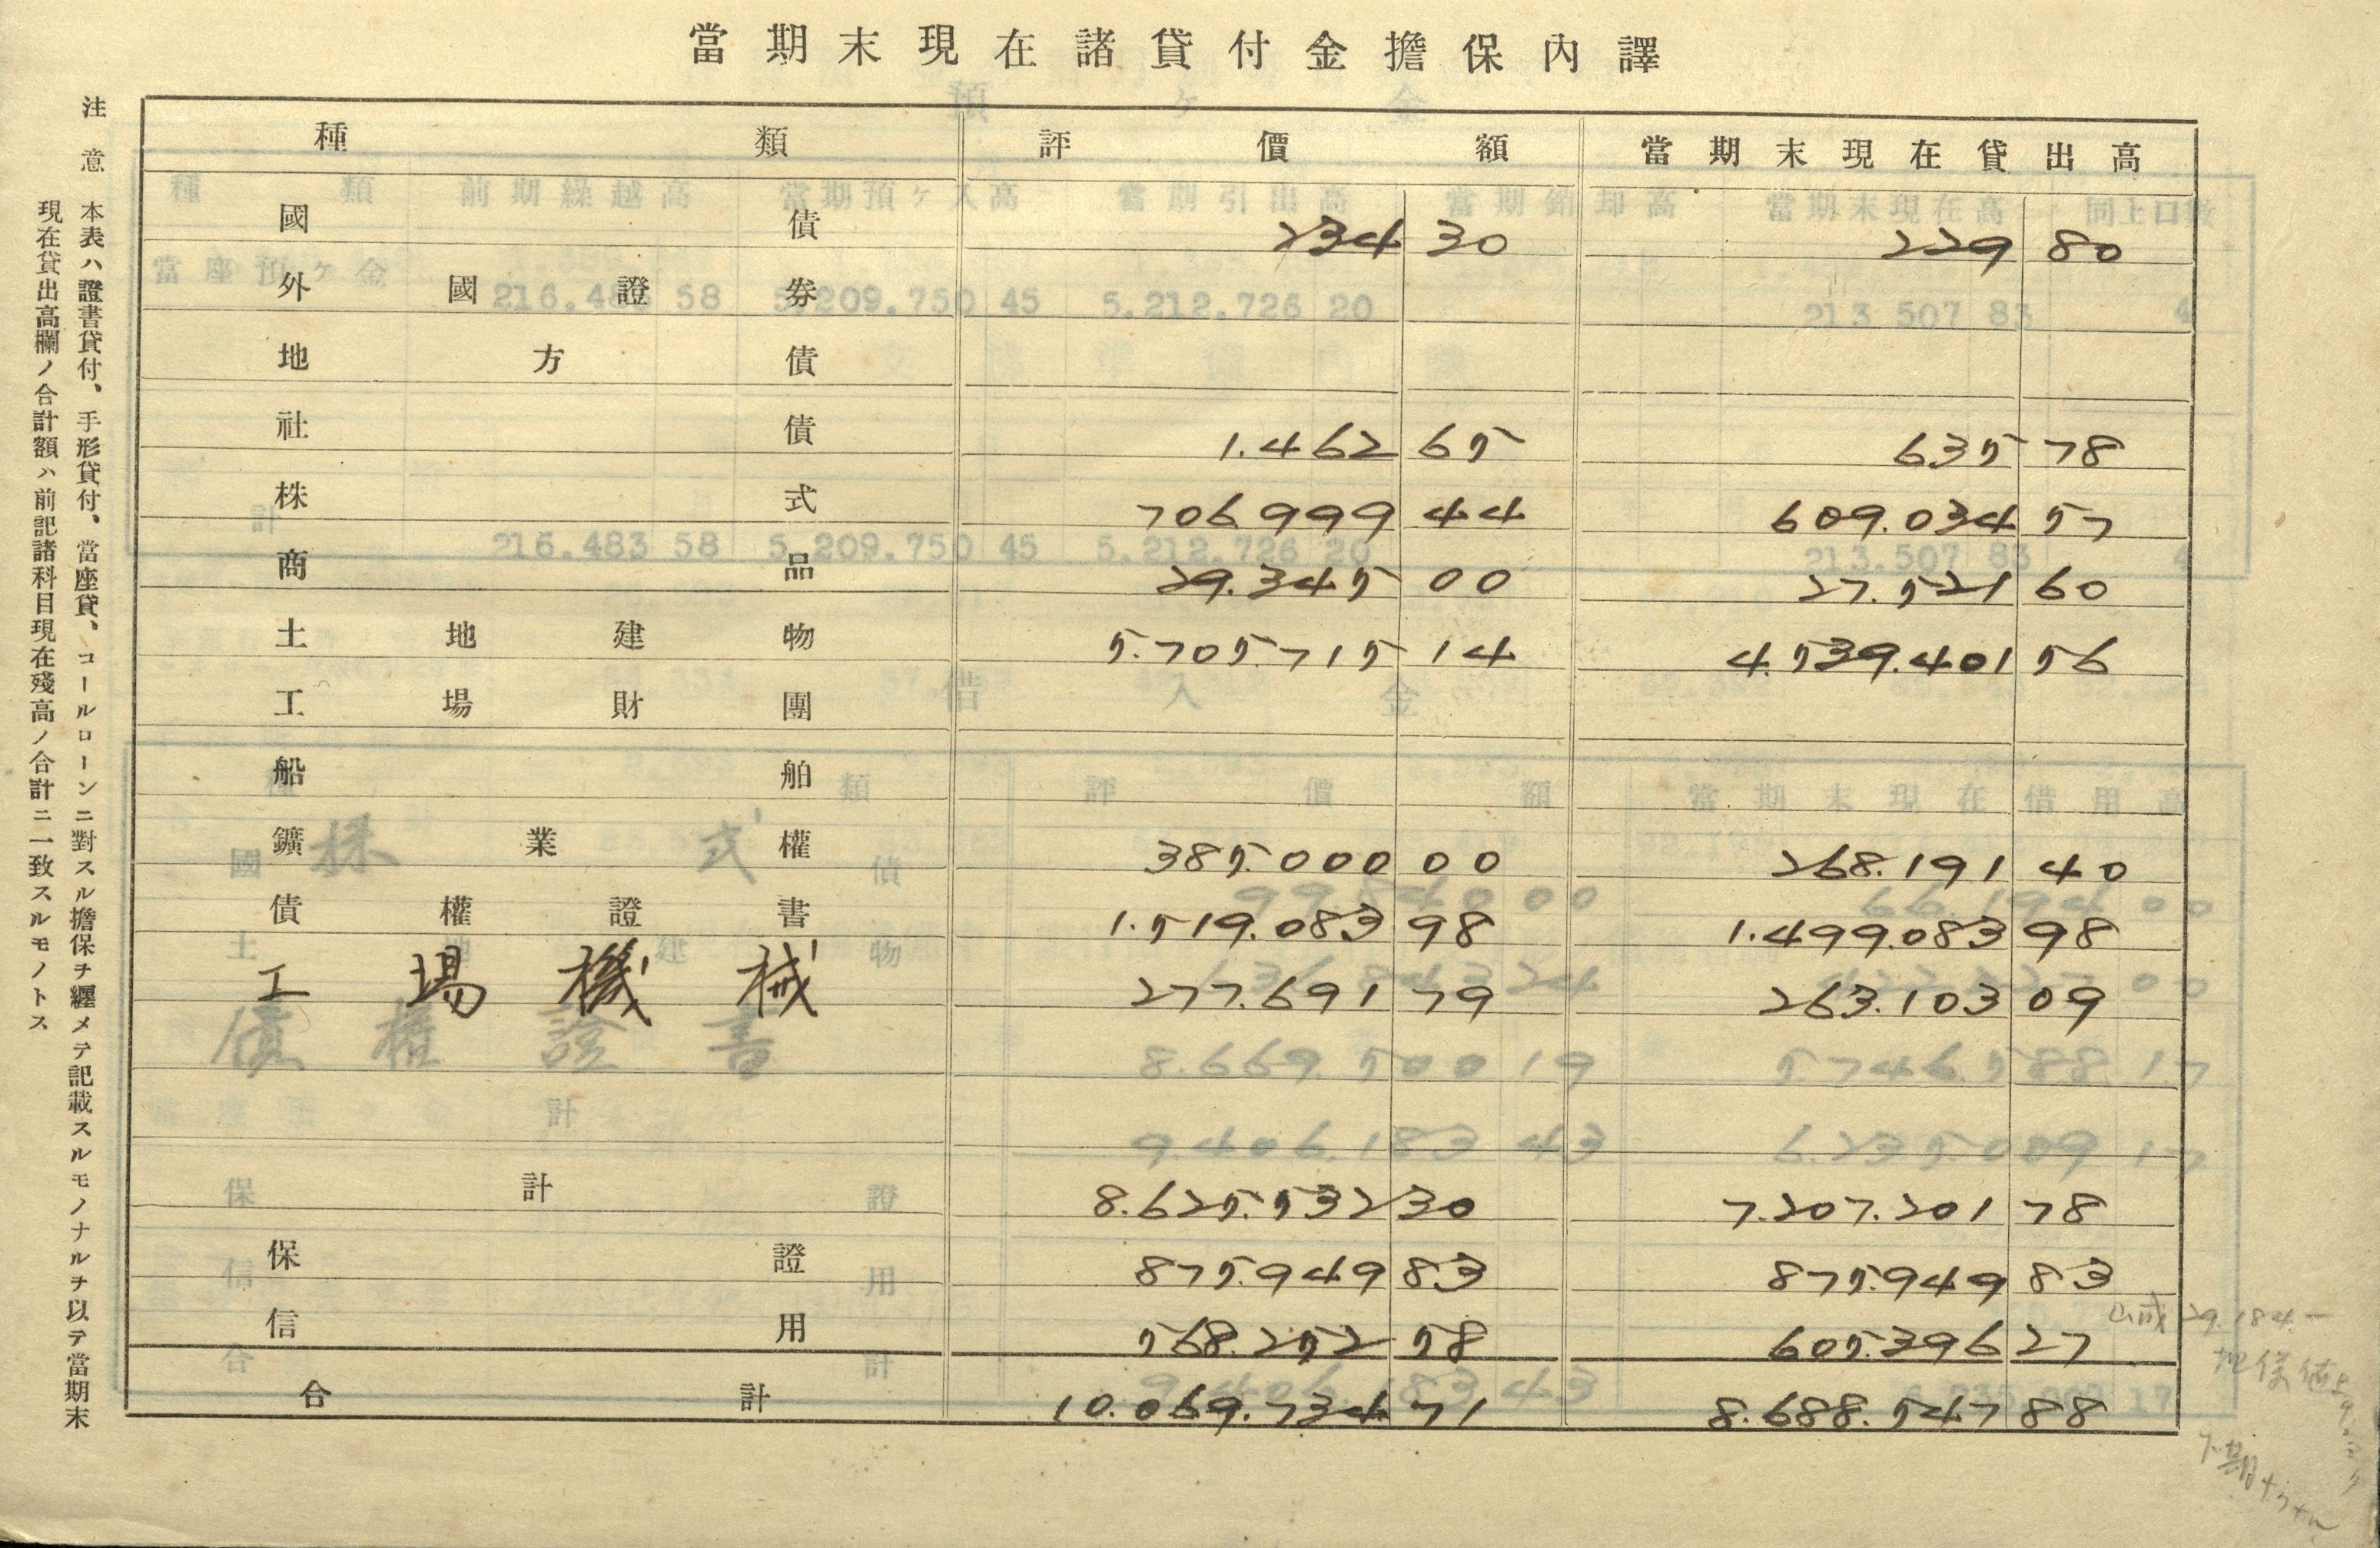 當期末現在諸貸付金擔保內譯
種類 評價額 當期末現在貸出高
國債 234 30 229 80
外國證券
地方債
社債 1.462 65 635 78
株式 706.999 44 609.034 57
商品 29.345 00 27.521 60
土地建物 5.705.715 14 4.539.401 56
工場財團
船舶
鑛業權 385.000 00 268.191 40
債權證書 1.519.083 98 1.499.083 98
工場機械 277.691 79 263.103 09
計 8.625.532 30 7.207.201 78
保證 875.949 83 875.949 83
信用 568.252 58 605.396 27
合計 10.069.734 71 8.688.547 88
注意 本表ハ證書貸付、手形貸付、當座貸、コールローンニ對スル擔保チ纒メテ記載スルモノナルチ以テ當期末
現在貸出高欄ノ合計額ハ前記諸科目現在殘高ノ合計ニ一致スルモノトス
29.184.一